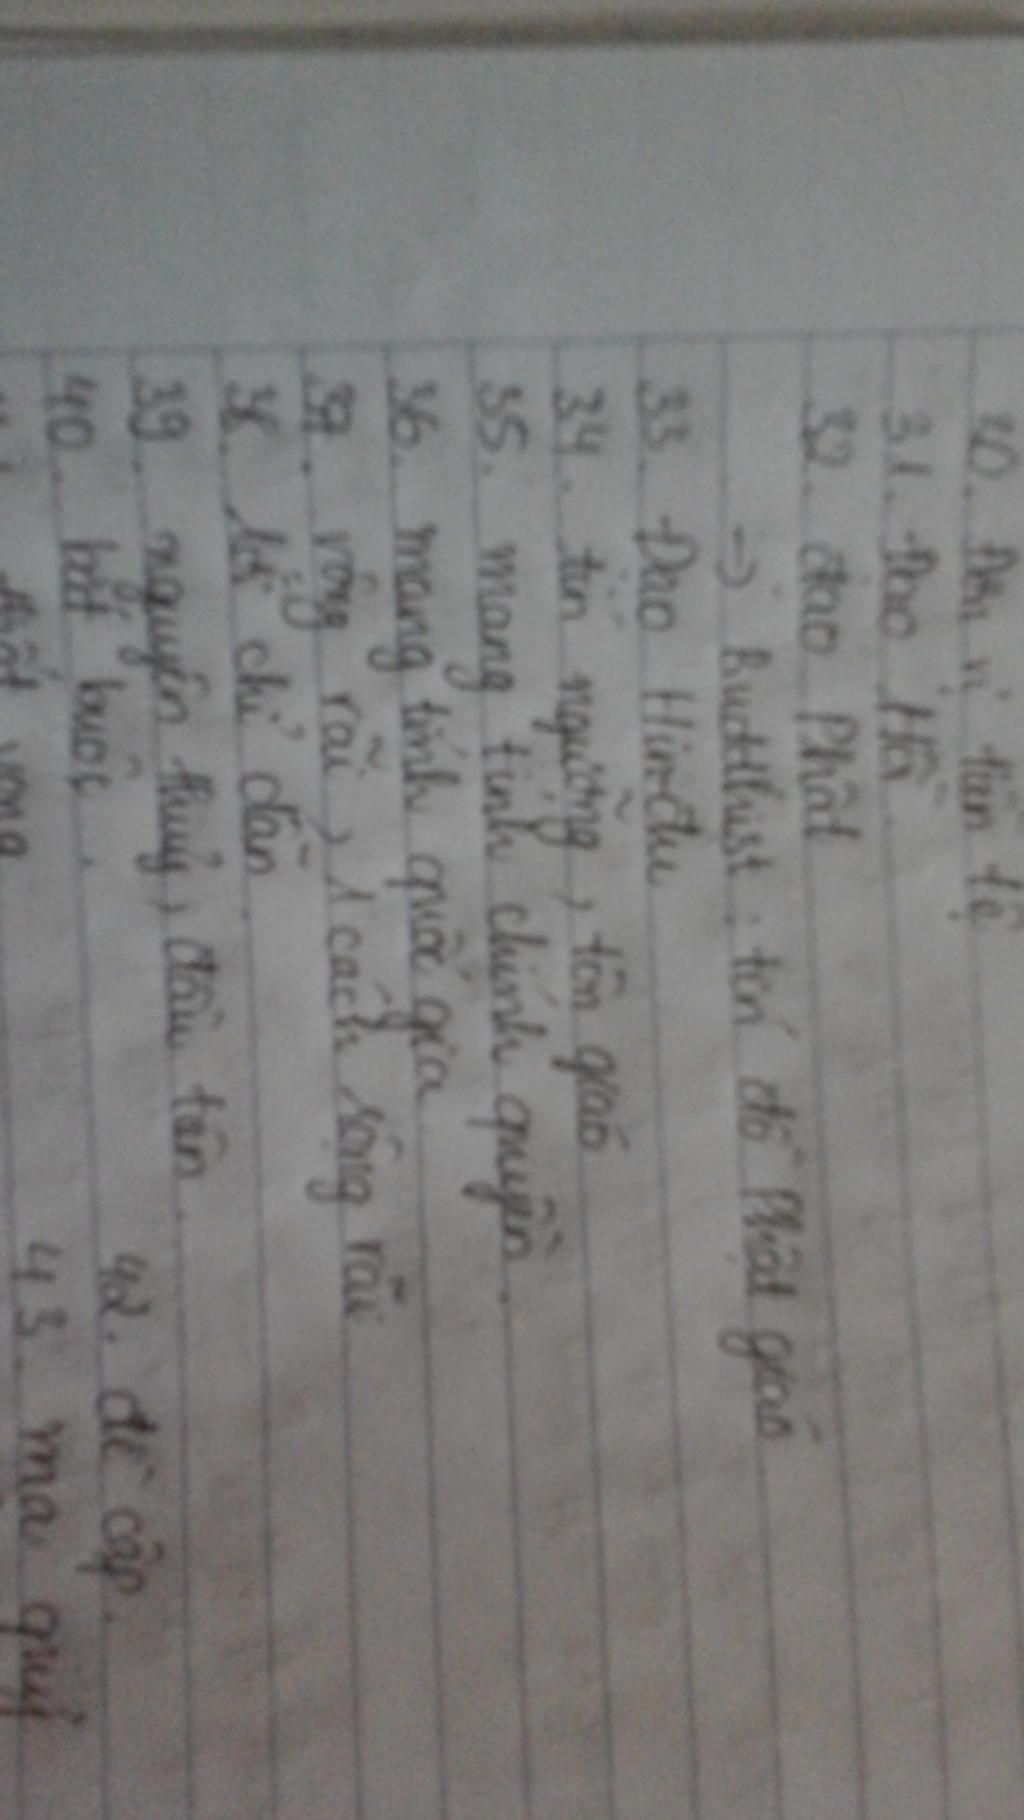 30. Đơn vị tiền tệ
31. Đạo Hồi
32. đạo Phật
→ Buddhist: tín đồ Phật giáo
33. Đạo Hinđu
34. tín ngưỡng, tôn giáo
35. mang tính chính quyền.
36. mang tính quốc gia
37. rộng rãi, 1 cách rộng rãi
38. sự chỉ dẫn
39. nguyên thuỷ, đầu tiên.
40. bắt buộc.
42. đề cập.
thất vọng
43. ma quỷ